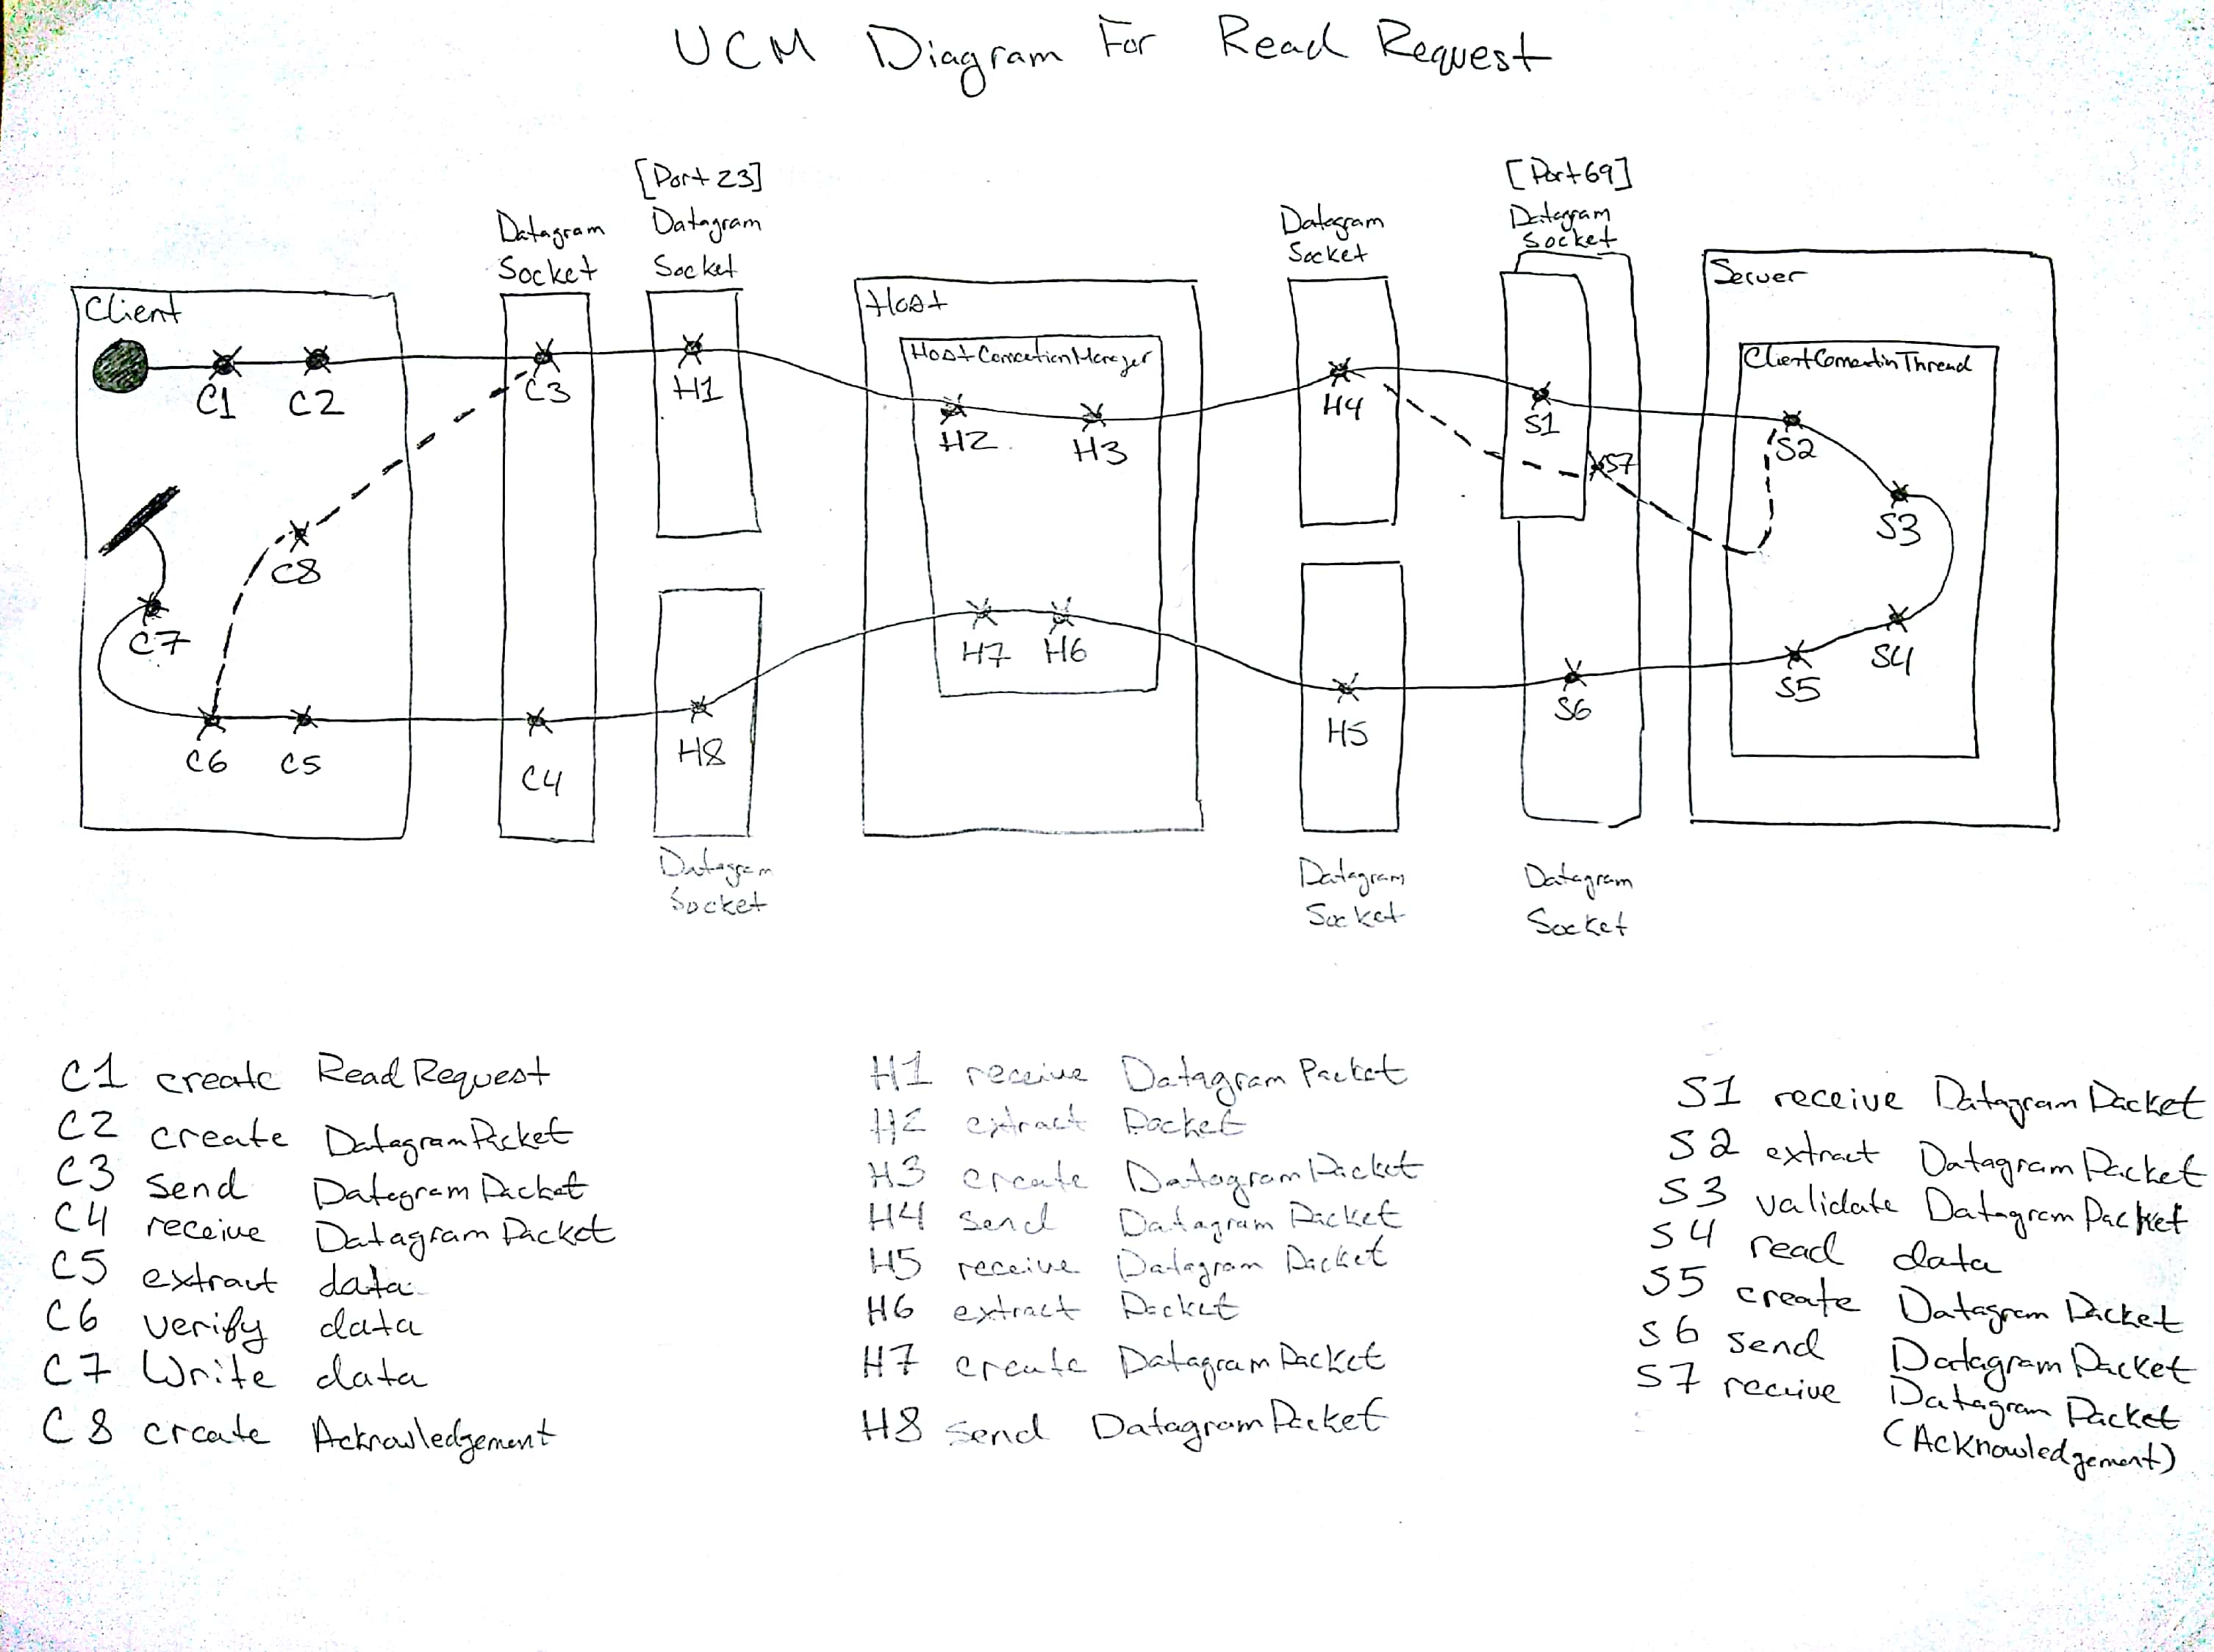 UCM Diagram For Read Request
[Port 23]
[Port 69]
Datagram
Socket
Datagram
Socket
Datagram
Socket
Datagram
Socket
Client
C1
C2
C3
C4
C5
C6
C7
C8
H1
H8
Datagram
Socket
Host
H2
H3
H7
H6
H4
H5
Datagram
Socket
S1
S7
S6
Datagram
Socket
Server
S2
S3
S4
S5
C1 create Read Request
C2 create DatagramPacket
C3 send DatagramPacket
C4 receive DatagramPacket
C5 extract data
C6 verify data
C7 Write data
C8 create Acknowledgement
H1 receive DatagramPacket
H2 extract Packet
H3 create DatagramPacket
H4 send Datagram Packet
H5 receive Datagram Packet
H6 extract Packet
H7 create DatagramPacket
H8 send DatagramPacket
S1 receive DatagramPacket
S2 extract DatagramPacket
S3 validate DatagramPacket
S4 read data
S5 create Datagram Packet
S6 send DatagramPacket
S7 recive Datagram Packet
(Acknowledgement)